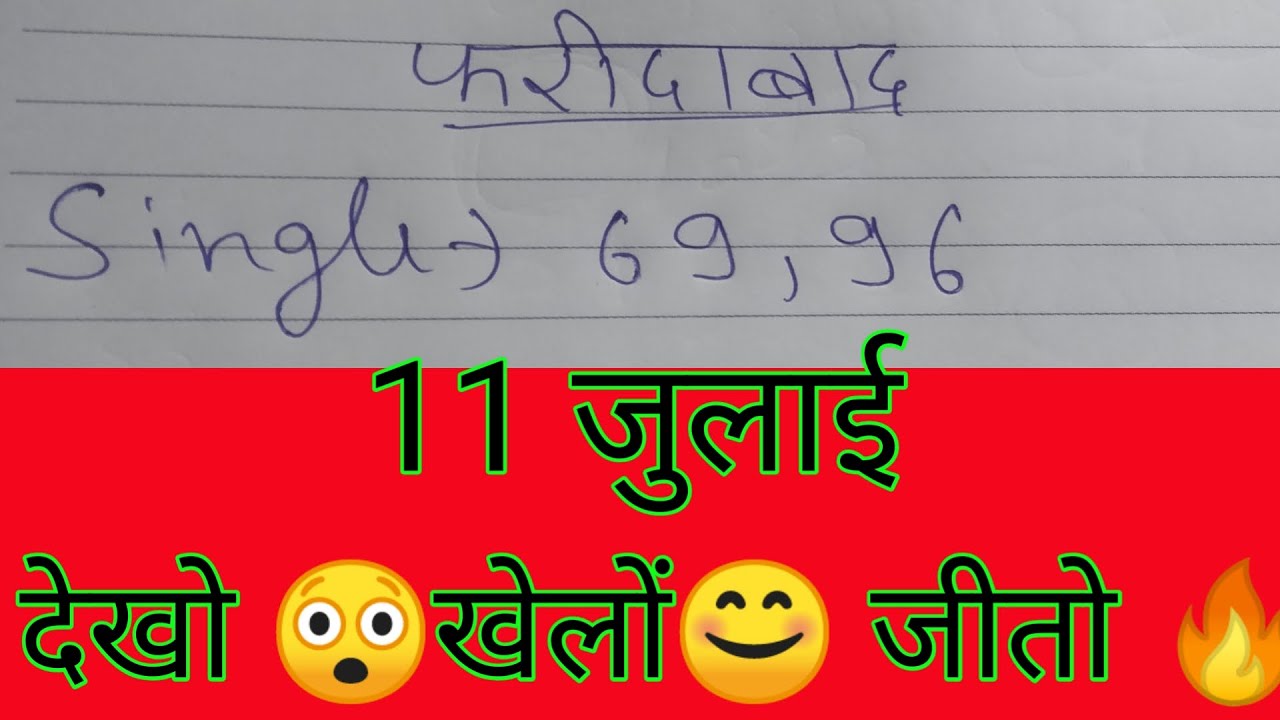 फरीदाबाद
Single→ 69, 96
11 जुलाई
देखो 😲खेलों😊 जीतो 🔥